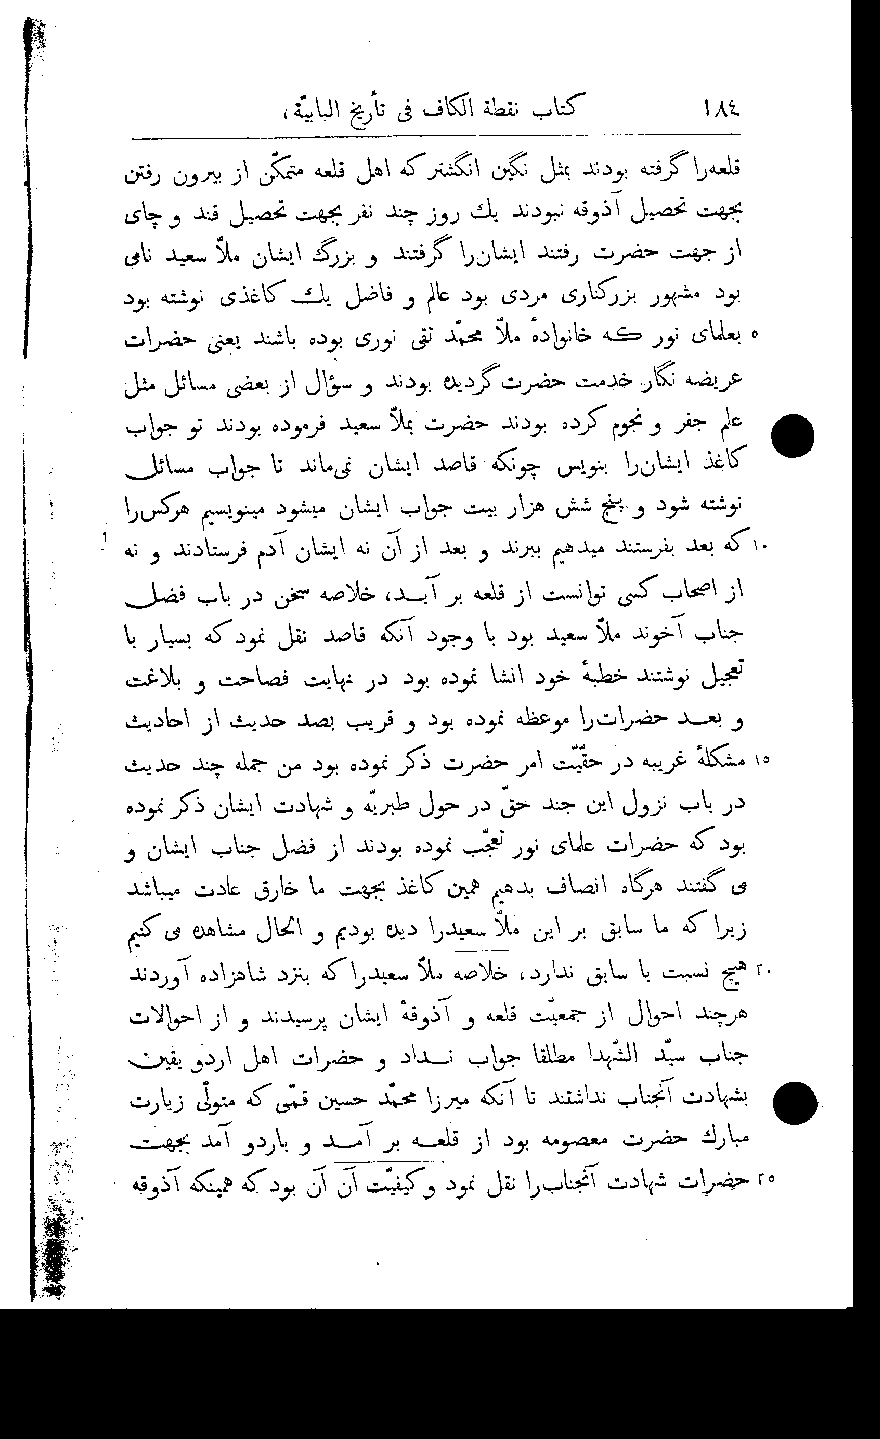 ١٨٤ كتاب نقطة الكاف فى تأريخ البابيّة،
قلعه‌را گرفته بودند بمثل نگین انگشتر که اهل قلعه متمکّن از بیرون رفتن
بجهت تحصیل آذوقه نبودند یك روز چند نفر بجهت تحصیل قند و چای
از جهت حضرت رفتند ایشان‌را گرفتند و بزرگ ایشان ملاّ سعید نامی
بود مشهور بزرکناری مردی بود عالم و فاضل یك کاغذی نوشته بود
٥ بعلمای نور که خانوادهٔ ملاّ محمّد تقی نوری بوده باشند یعنی حضرات
عریضه نگار خدمت حضرت گردیده بودند و سؤال از بعضی مسائل مثل
علم جفر و نجوم کرده بودند حضرت بملاّ سعید فرموده بودند تو جواب
کاغذ ایشان‌را بنویس چونکه قاصد ایشان نمی‌ماند تا جواب مسائل
نوشته شود و پنج شش هزار بیت جواب ایشان میشود مینویسیم هرکس‌را
١٠ که بعد بفرستند میدهیم ببرند و بعد از آن نه ایشان آدم فرستادند و نه
از اصحاب کسی توانست از قلعه بر آید، خلاصه سخن در باب فضل
جناب آخوند ملاّ سعید بود با وجود آنکه قاصد نقل نمود که بسیار با
تعجیل نوشتند خطبهٔ خود انشا نموده بود در نهایت فصاحت و بلاغت
و بعد حضرات‌را موعظه نموده بود و قریب بصد حدیث از احادیث
١٥ مشکلهٔ غریبه در حقّیّت امر حضرت ذکر نموده بود من جمله چند حدیث
در باب نزول این جند حقّ در حول طبریّه و شهادت ایشان ذکر نموده
بود که حضرات علمای نور تعجّب نموده بودند از فضل جناب ایشان و
می گفتند هرگاه انصاف بدهیم همین کاغذ بجهت ما خارق عادت میباشد
زیرا که ما سابق بر این ملاّ سعیدرا دیده بودیم و الحال مشاهده می کنیم
٢٠ هیچ نسبت با سابق ندارد، خلاصه ملاّ سعیدرا که بنزد شاهزاده آوردند
هرچند احوال از جمعیّت قلعه و آذوقهٔ ایشان پرسیدند و از احوالات
جناب سیّد الشّهدا مطلقا جواب نداد و حضرات اهل اردو یقین
بشهادت آنجناب نداشتند تا آنکه میرزا محمّد حسین قمّی که متولّی زیارت
مبارك حضرت معصومه بود از قلعه بر آمد و باردو آمد بجهت
٢٥ حضرات شهادت آنجناب‌را نقل نمود و کیفیّت آن آن بود که همینکه آذوقه